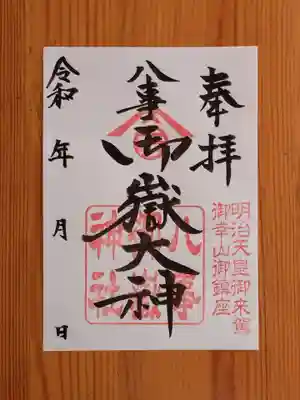 奉拝
明治天皇御来駕
御幸山御鎮座
八事御嶽大神
八事御嶽神社
令和 年 月 日